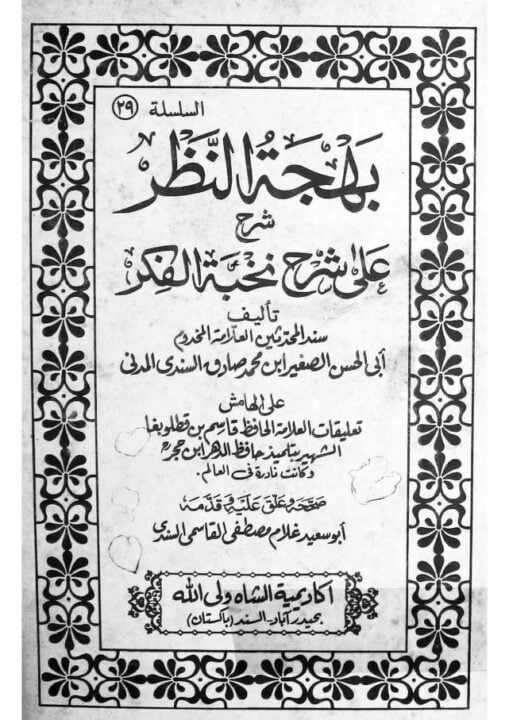 السلسلة ٢٩
بهجة النظر
شرح
على شرح نخبة الفكر
تأليف
سند المحدثين العلامة المخدوم
أبى الحسن الصغير ابن محمد صادق السندى المدنى
على الهامش
تعليقات العلامة الحافظ قاسم بن قطلوبغا
الشهير بتلميذ حافظ الدهر ابن حجرؒ
وكانت نادرة فى العالم.
صححه وعلق عليه وقدمه
أبو سعيد غلام مصطفى القاسمى السندى
اكاديمية الشاه ولى الله
بحيدرآباد-السند (پاکستان)